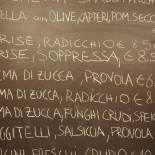 ELLA CON OLIVE, CAPPERI, POM SECC
RISE, RADICCHIO € 8.5
RISE, SOPPRESSA, € 8.5
EMA DI ZUCCA, PROVOLA €6
EMA DI ZUCCA, RADICCHIO 8
EMA DI ZUCCA, FUNGHI CRUDI, SPEK
GGITELLI, SALSICCIA, PROVOLA
FRESCHI CRUDO